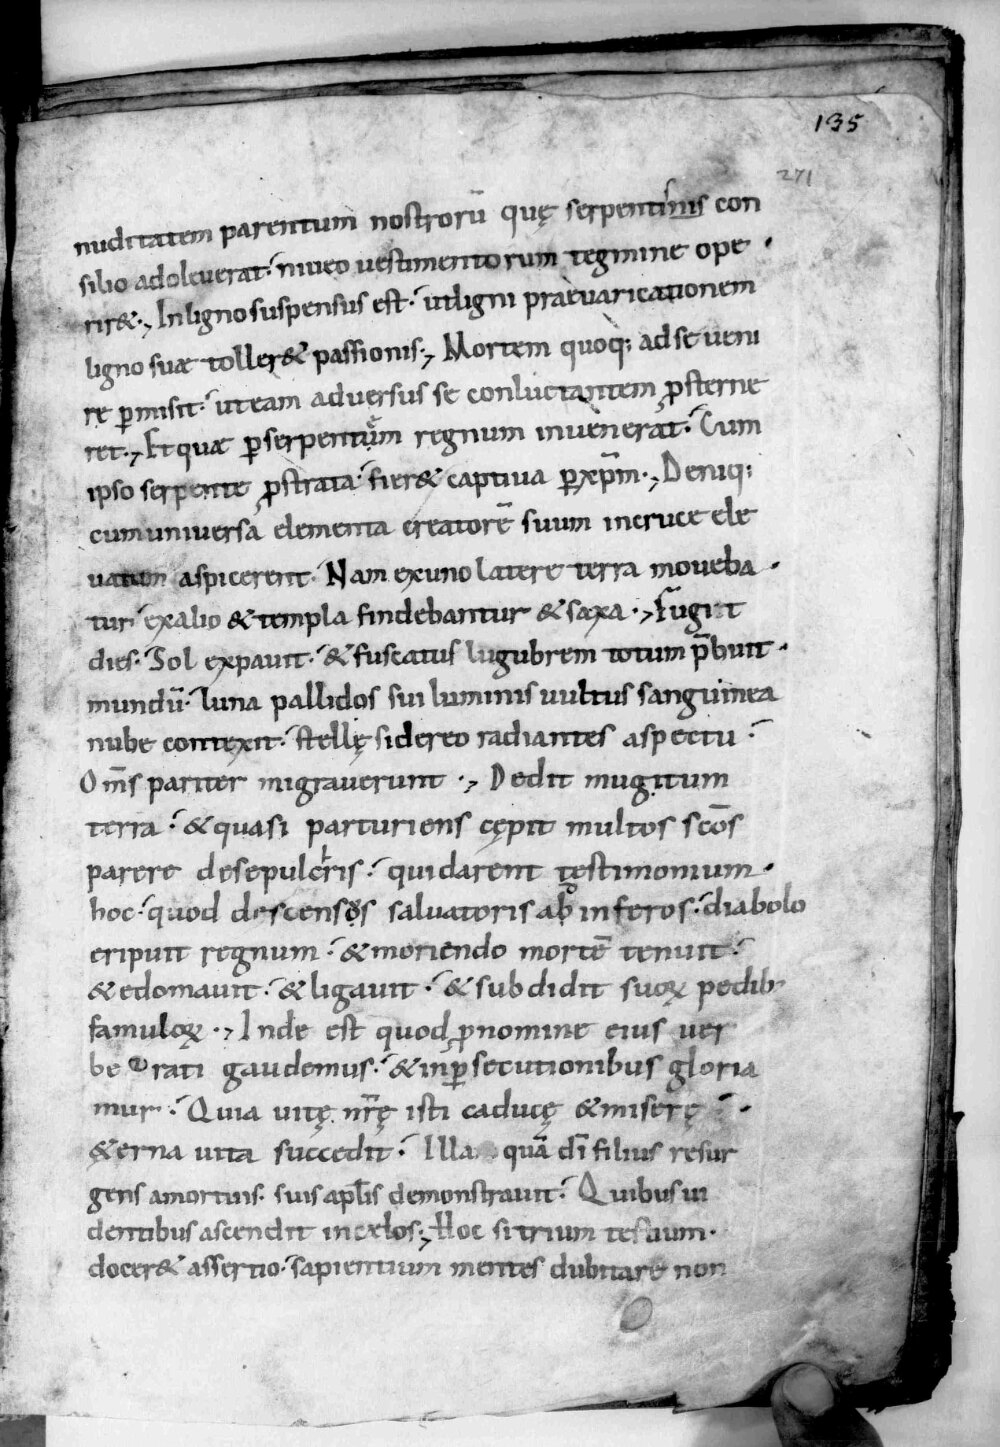 135
271
nuditatem parentum nostrorū quę serpentinis con
silio adoleverat· niveo vestimentorum tegmine ope
rir&·, In ligno suspensus est· ut ligni praevaricationem
ligno suae toller& passionis·, Mortem quoq; ad se veni
re p̄misit· ut eam adversus se conluctantem ꝓsterne
ret·, Et quae ꝑ serpentum regnum invenerat· Cum
ipso serpente ꝓstrata· fier& captiva ꝑ xp̄m·, Deniq;
cum universa elementa creatorē suum in cruce ele
vatum aspicerent· Nam ex uno latere terra moveba
tur· ex alio & templa findebantur & saxa·, Fugit
dies· Sol expavit· & fuscatus lugubrem totum p̄buit
mundū· luna pallidos sui luminis vultus sanguinea
nube contexit· stellę sidereo radiantes aspectu·
Om̄s pariter migraverunt·, Dedit mugitum
terra· & quasi parturiens cępit multos scōs
parere de sepulcris· qui darent testimonium
hoc· quod descensos salvatoris ab inferos· diabolo
eripuit regnum· & moriendo mortē tenuit·
& edomavit· & ligavit· & subdidit suoꝝ pedib;
famuloꝝ·, Inde est quod ꝓ nomine eius ver
berati gaudemus· & in ꝑsecutionibus gloria
mur· Quia vitę nr̄ę isti caducę & miserę·
&erna vita succedit· Illa quā dī filius resur
gens a mortuis· suis apl̄is demonstravit· Quibus vi
dentibus ascendit in cęlos·, Hoc si trium testium·
docer& assertio· sapientium mentes dubitare non